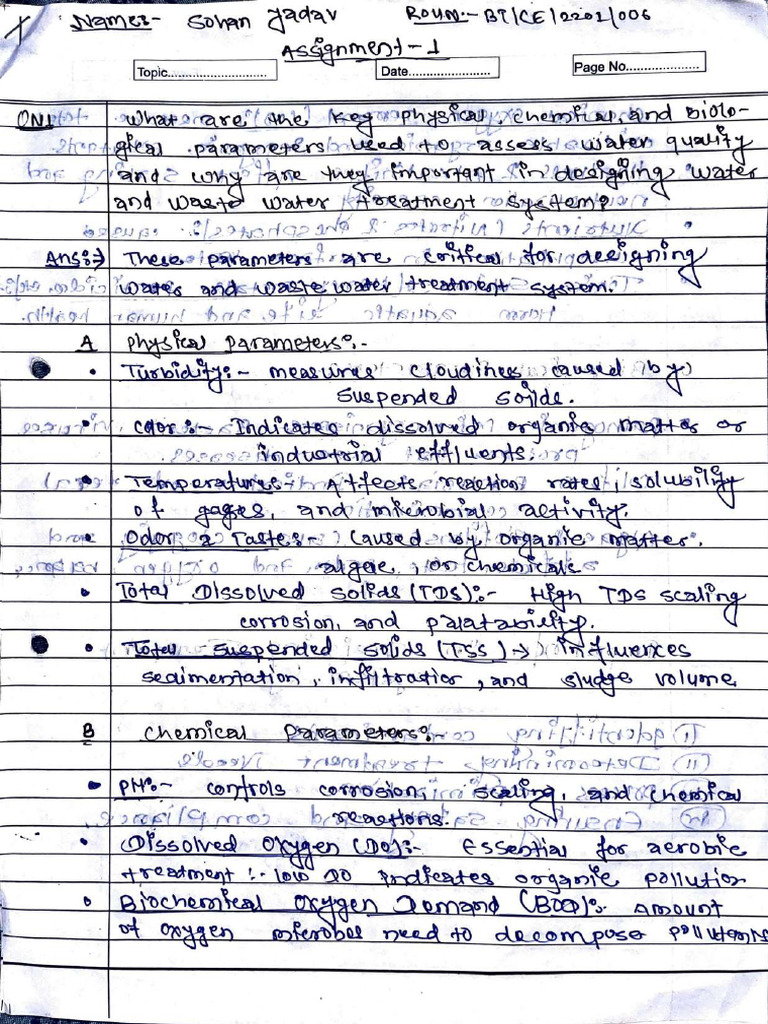 Name:- Sohan Yadav Rollno:- BT/CE/2201/006
Assignment-1
Topic.............................. Date........................ Page No.....................
QN1 What are the key physical, chemical, and Biolo-
gical parameters used to assess water quality
and why are they important in designing water
and waste water treatment system?
Ans:→ These parameters are critical for designing
water and waste water treatment system.
A Physical Parameters:-
• Turbidity:- measures cloudines caused by
suspended solids.
• Color:- Indicates dissolved organic matter or
industrial effluents.
• Temperatures:- Affects reaction rates, solubility
of gages, and microbial activity.
• Odor & Taste:- Caused by organic matter.
algae, or chemicals
• Total Dissolved Solids (TDS):- High TDS scaling
corrosion, and palatability.
• Total suspended solids (TSS) → influences
sedimentation, infiltration, and sludge volume
B Chemical Parameters:-
• PH:- controls corrosion, scaling, and chemical
reactions.
• Dissolved Oxygen (DO):- Essential for aerobic
treatment:- low DO indicates organic pollution
• Biochemical Oxygen Demand (BOD):- Amount
of oxygen microbes need to decompose pollutents